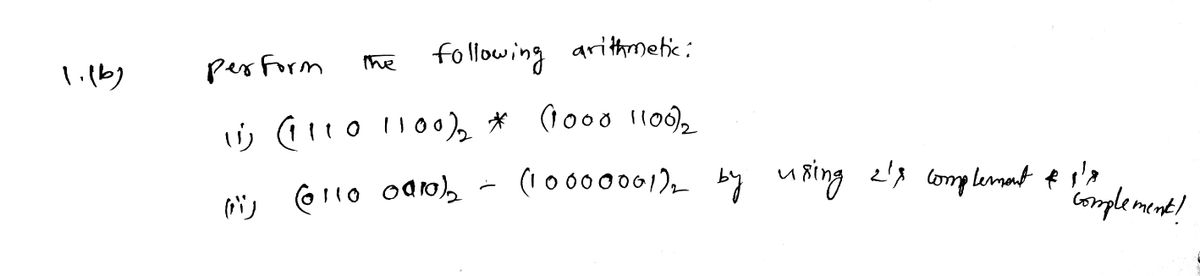 1.(b) perform the following arithmetic:
(i) (1110 1100)₂ * (1000 1100)₂
(ii) (0110 0010)₂ - (10000001)₂ by using 2's complement & 1's complement!